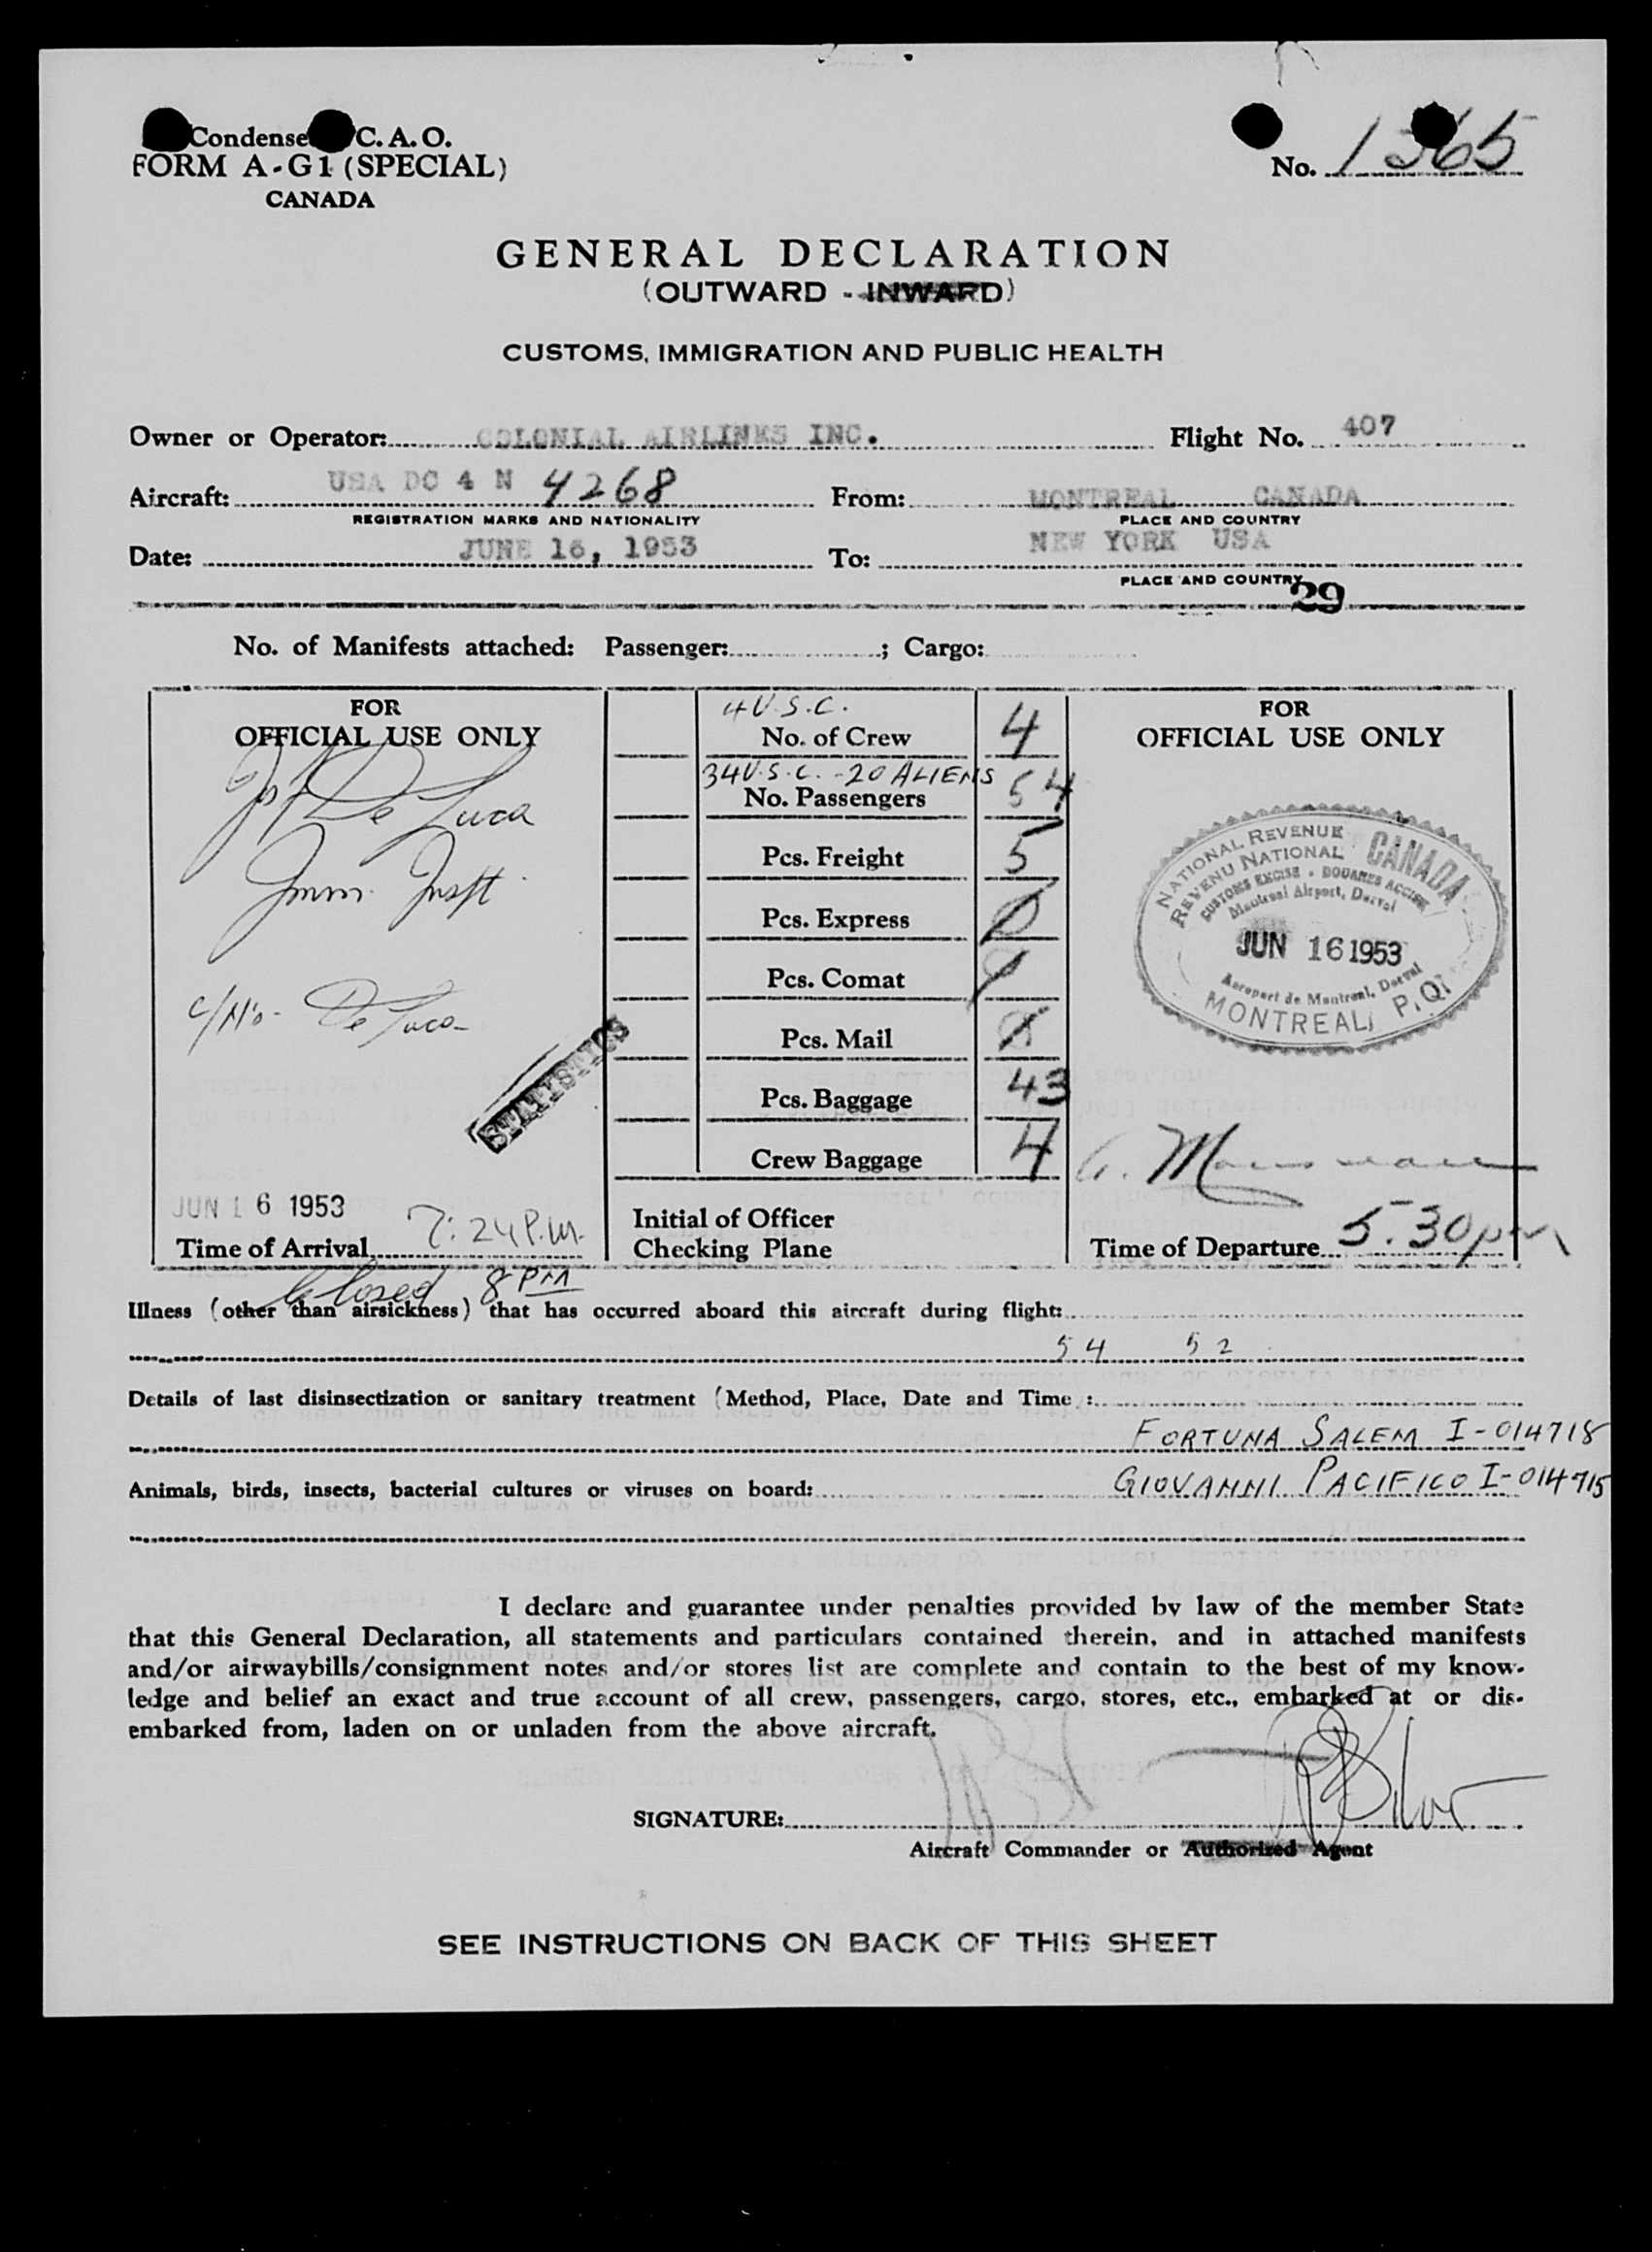 Condense C. A. O.
FORM A-G1 (SPECIAL)
CANADA
No. 1365
GENERAL DECLARATION
(OUTWARD - INWARD)
CUSTOMS, IMMIGRATION AND PUBLIC HEALTH
Owner or Operator: COLONIAL AIRLINES INC. Flight No. 407
Aircraft: USA DC 4 N 4268 From: MONTREAL CANADA
REGISTRATION MARKS AND NATIONALITY PLACE AND COUNTRY
Date: JUNE 16, 1953 To: NEW YORK USA
PLACE AND COUNTRY
29
No. of Manifests attached: Passenger: ; Cargo:
FOR
OFFICIAL USE ONLY
De Luca
Imm. Inspt.
De Luca
STATISTICS
JUN 16 1953
Time of Arrival 7:24 P.M.
4 U.S.C.
No. of Crew 4
34 U.S.C. - 20 ALIENS
No. Passengers 54
Pcs. Freight 5
Pcs. Express
Pcs. Comat
Pcs. Mail
Pcs. Baggage 43
Crew Baggage 4
Initial of Officer
Checking Plane
FOR
OFFICIAL USE ONLY
NATIONAL REVENUE CANADA
REVENU NATIONAL
CUSTOMS EXCISE • DOUANES ACCISE
Montreal Airport, Dorval
JUN 16 1953
Aeroport de Montreal, Dorval
MONTREAL, P.Q.
Time of Departure 5.30 pm
Closed 8 PM
Illness (other than airsickness) that has occurred aboard this aircraft during flight:
54 52
Details of last disinsectization or sanitary treatment (Method, Place, Date and Time :
FORTUNA SALEM I-014718
Animals, birds, insects, bacterial cultures or viruses on board: GIOVANNI PACIFICO I-014715
I declare and guarantee under penalties provided by law of the member State
that this General Declaration, all statements and particulars contained therein, and in attached manifests
and/or airwaybills/consignment notes and/or stores list are complete and contain to the best of my know-
ledge and belief an exact and true account of all crew, passengers, cargo, stores, etc., embarked at or dis-
embarked from, laden on or unladen from the above aircraft.
SIGNATURE:
Aircraft Commander or Authorized Agent
SEE INSTRUCTIONS ON BACK OF THIS SHEET